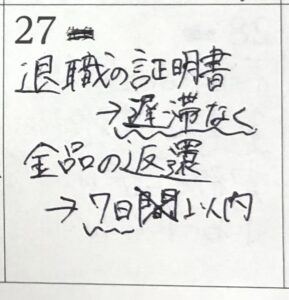 27
退職の証明書
→遅滞なく
金品の返還
→7日以内